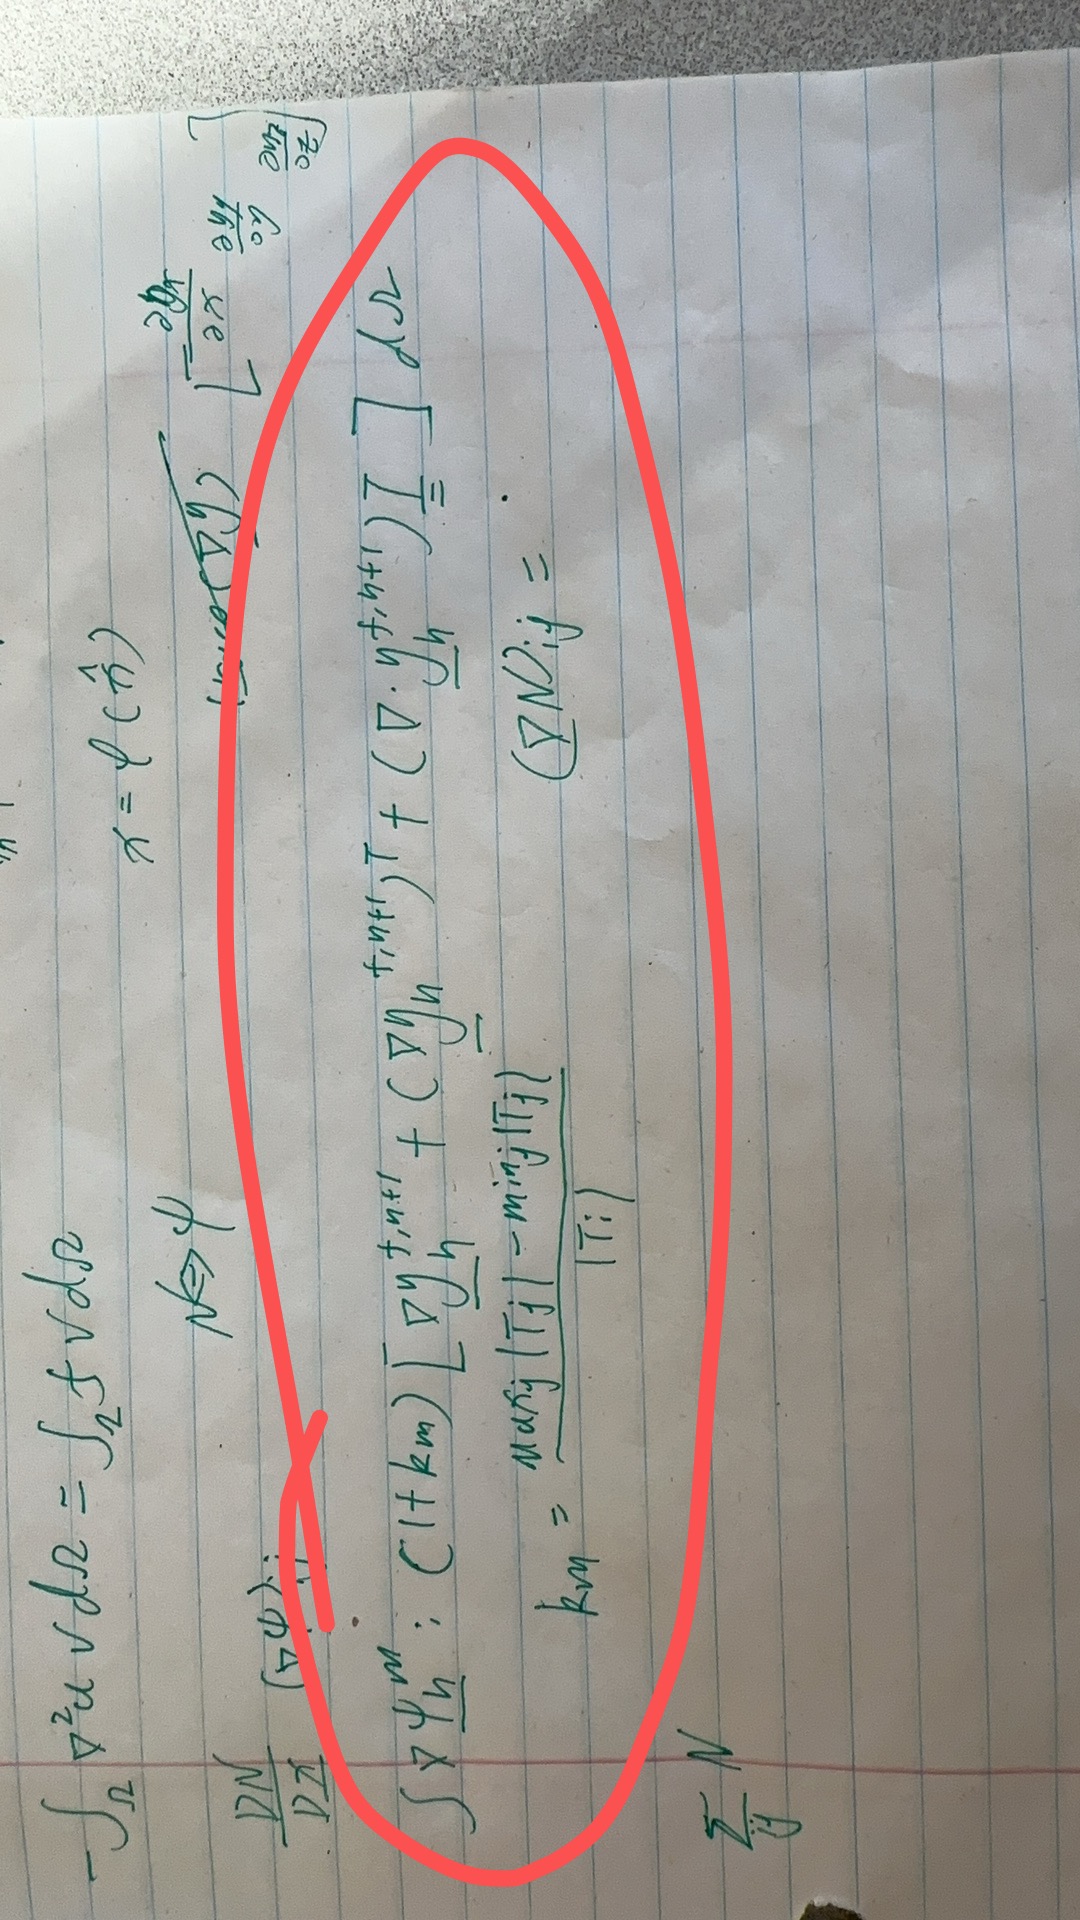 -∫_Ω ∇²u v dΩ = ∫_Ω f v dΩ
x = φ(x̂)
N ⇔ ψ
DN/DX (∇ψ)ij
(∇y) [∂yx/∂x ∂yx/∂y ∂yx/∂z]
∫ ∇ψ_h^m : (1+km) [∇y_h^{f,n+1} + (∇y_h^{f,n+1})^T + (∇·y_h^{f,n+1}) I] dΩ
km = (maxj |Tj| - minj |Tj|) / |Ti|
(∇N)ij =
Σ_ij N